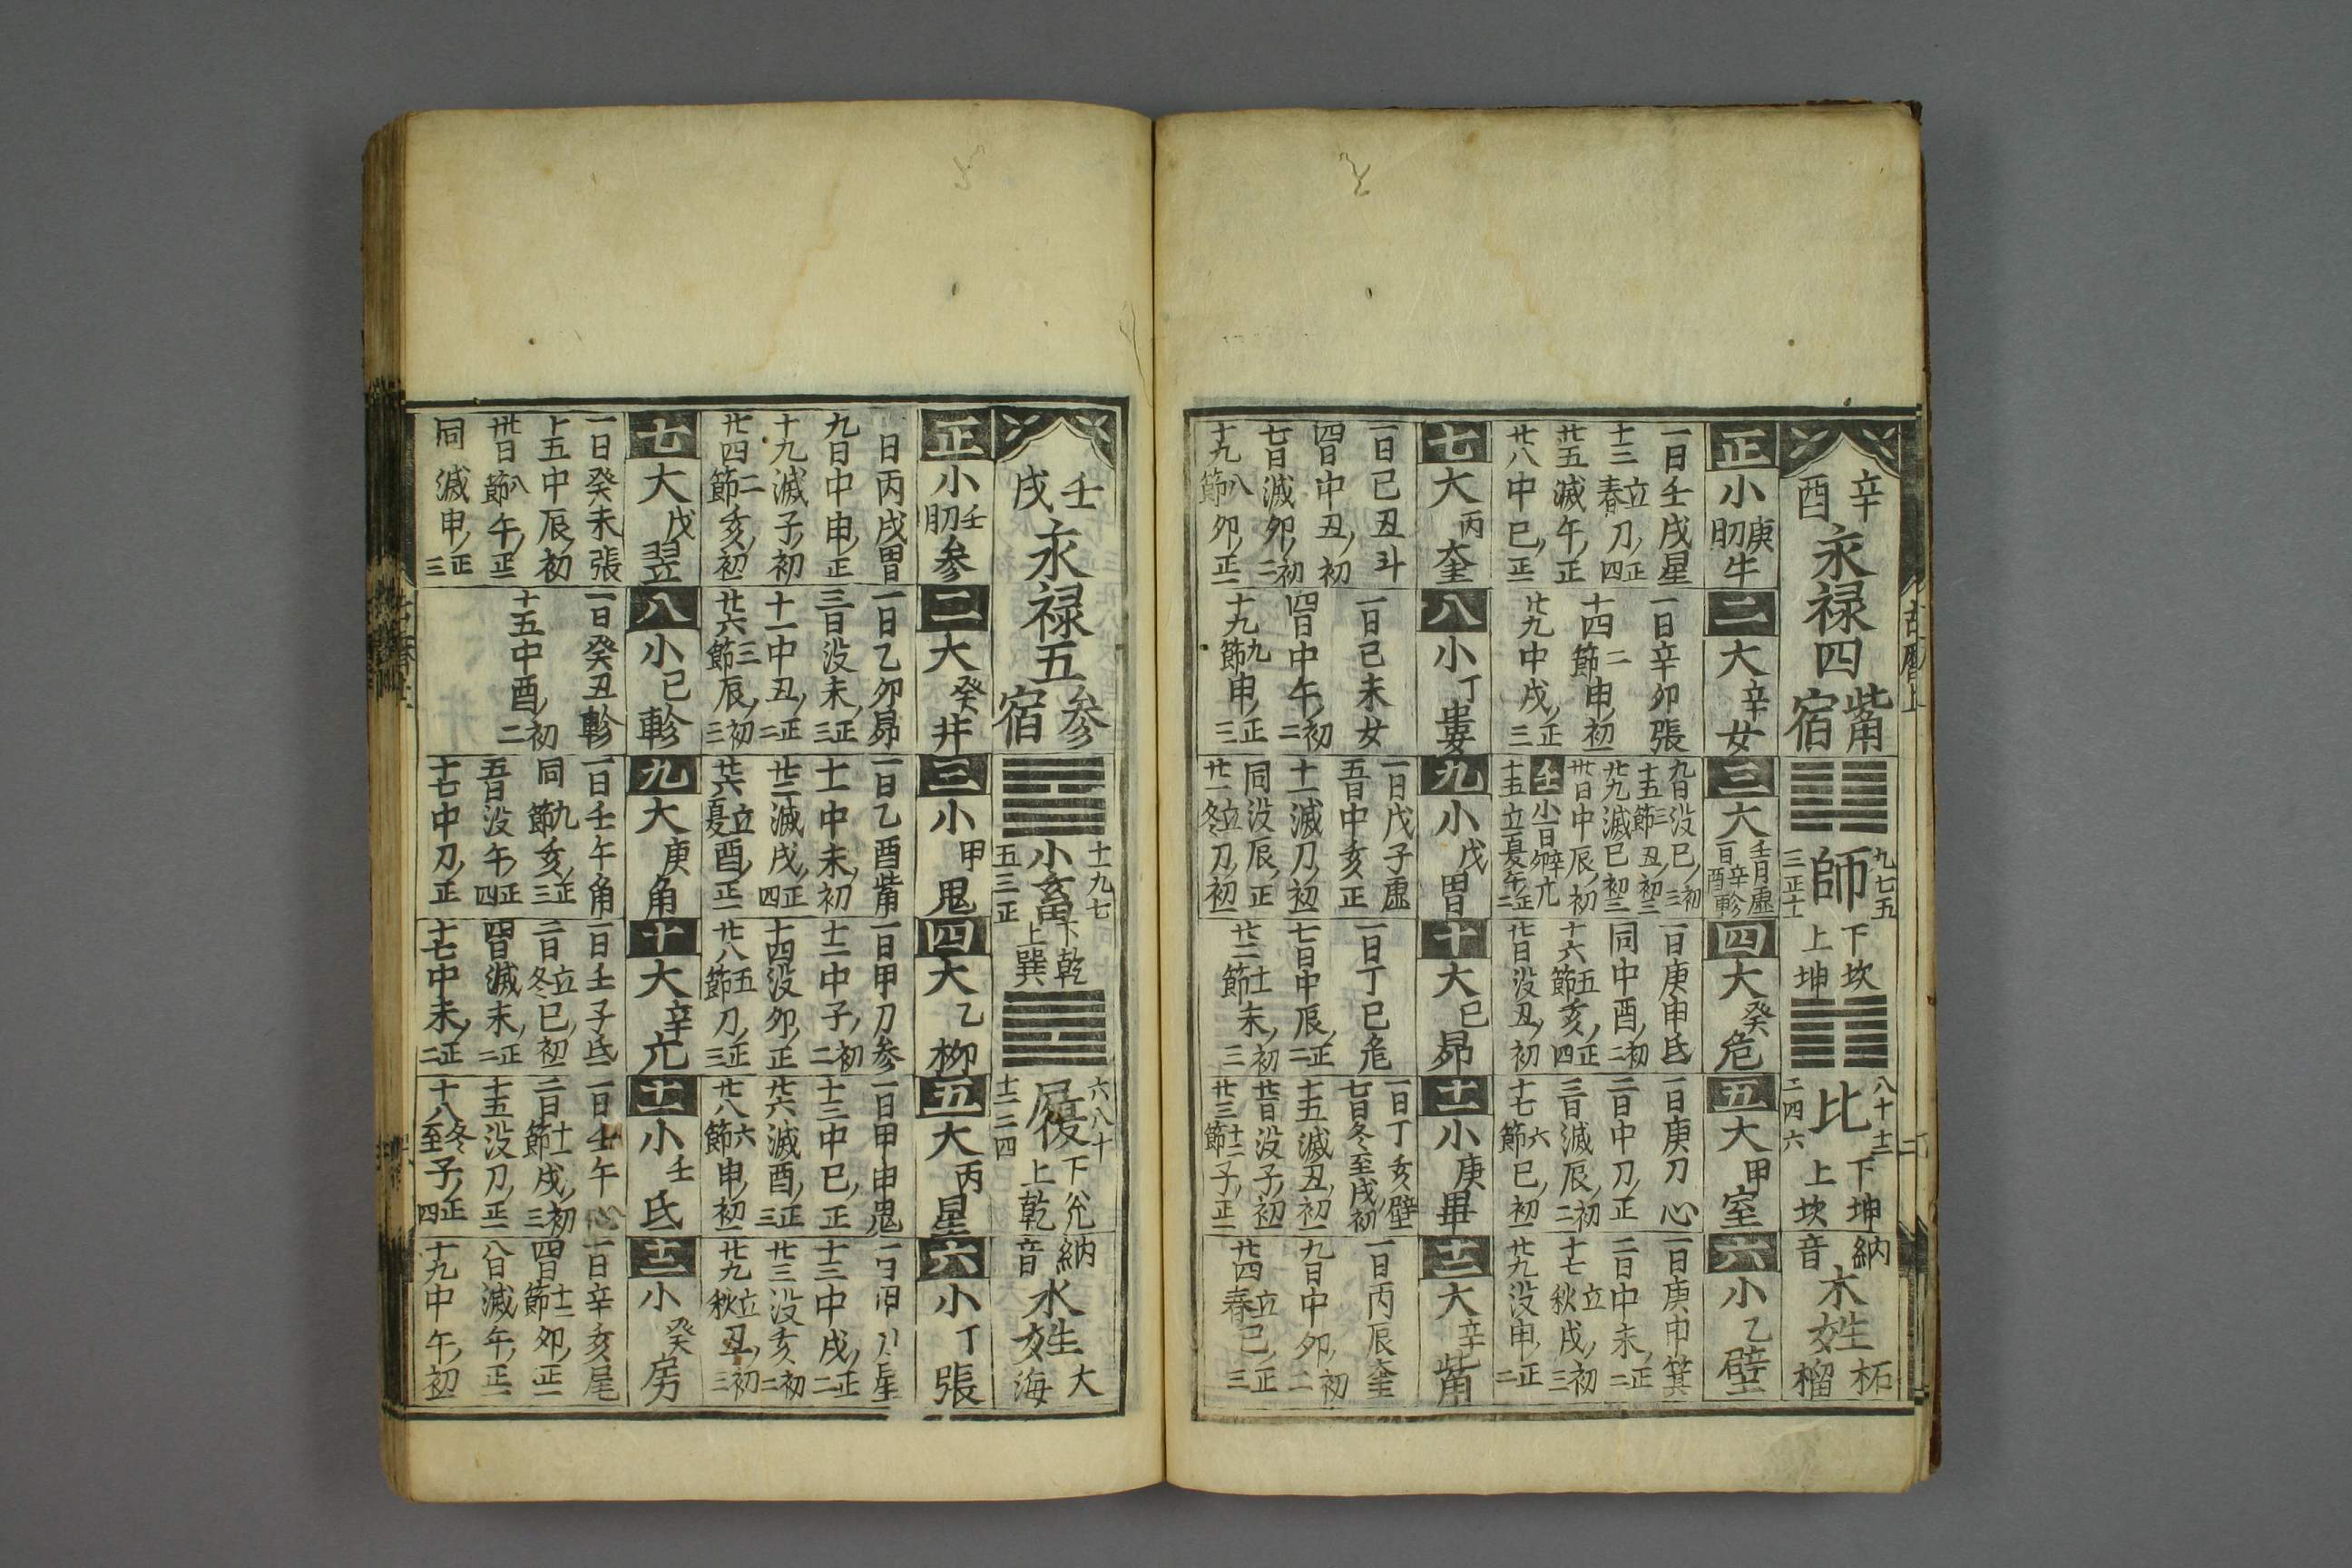 古暦上
二
辛酉
永禄四
觜宿
九七五
師
三正十
下坎
上坤
八十十二
比
二四六
下坤
上坎
納音
木姓
柘榴
正
小庚牛
一日壬戌星
十三立春刀正四
廿五滅午正
廿八中巳正一
二
大辛女
一日辛卯張
十四二節申初一
廿九中戌正三
三
大壬虚
一日辛酉軫
九日没巳初三
十五三節丑初二
廿九滅巳初二
卅日中辰初
壬
小一日辛卯亢
十五立夏午正二
四
大癸危
一日庚申氐
同中酉初二
十六五節亥正四
廿日没丑初
五
大甲室
一日庚刀心
二日中刀正
三日滅辰初二
十七六節巳初一
六
小乙壁
一日庚申箕
二日中未正二
十七立秋戌初三
廿九没申正二
七
大丙奎
一日己丑斗
四日中丑初
七日滅卯初二
十九八節卯正一
八
小丁婁
一日己未女
四日中午初二
十九九節申正三
九
小戊胃
一日戊子虚
五日中亥正
十一滅刀初一
同没辰正
廿一立冬刀初一
十
大己昴
一日丁巳危
七日中辰正二
廿二十一節未初三
十一
小庚畢
一日丁亥壁
七日冬至戌初
十五滅丑初一
廿日没子初一
廿三十二節子正一
十二
大辛觜
一日丙辰奎
九日中卯初二
廿四立春巳正三
壬戌
永禄五
参宿
十九七
小畜
五三正
下乾
上巽
六八十
履
十二二四
下兊
上乾
納音
水姓
大海
正
小壬参
日丙戌胃
九日中申正
十九滅子初
廿四二節亥初一
二
大癸井
一日乙卯昴
三日没未正三
十一中丑正二
廿六三節辰初三
三
小甲鬼
一日乙酉觜
十一中未初
廿二滅戌正四
廿六立夏酉正一
四
大乙柳
一日甲刀参
十二中子初二
十四没卯正
廿八五節刀正三
五
大丙星
一日甲申鬼
十三中巳正
廿六滅酉正三
廿八六節申初一
六
小丁張
十三中戌正二
廿三没亥初二
廿九立秋丑初三
七
大戊翌
一日癸未張
十五中辰初
卅日八節午正一
同滅申正三
八
小己軫
一日癸丑軫
十五中酉初二
九
大庚角
一日壬午角
同九節亥正三
五日没午正四
十七中刀正
十
大辛亢
一日壬子氐
二日立冬巳初一
四日滅未正二
十七中未正二
十一
小壬氐
一日壬午心
二日十一節戌初三
十五没刀正一
十八冬至子正四
十二
小癸房
一日辛亥尾
四日十二節卯正一
八日滅午正一
十九中午初一